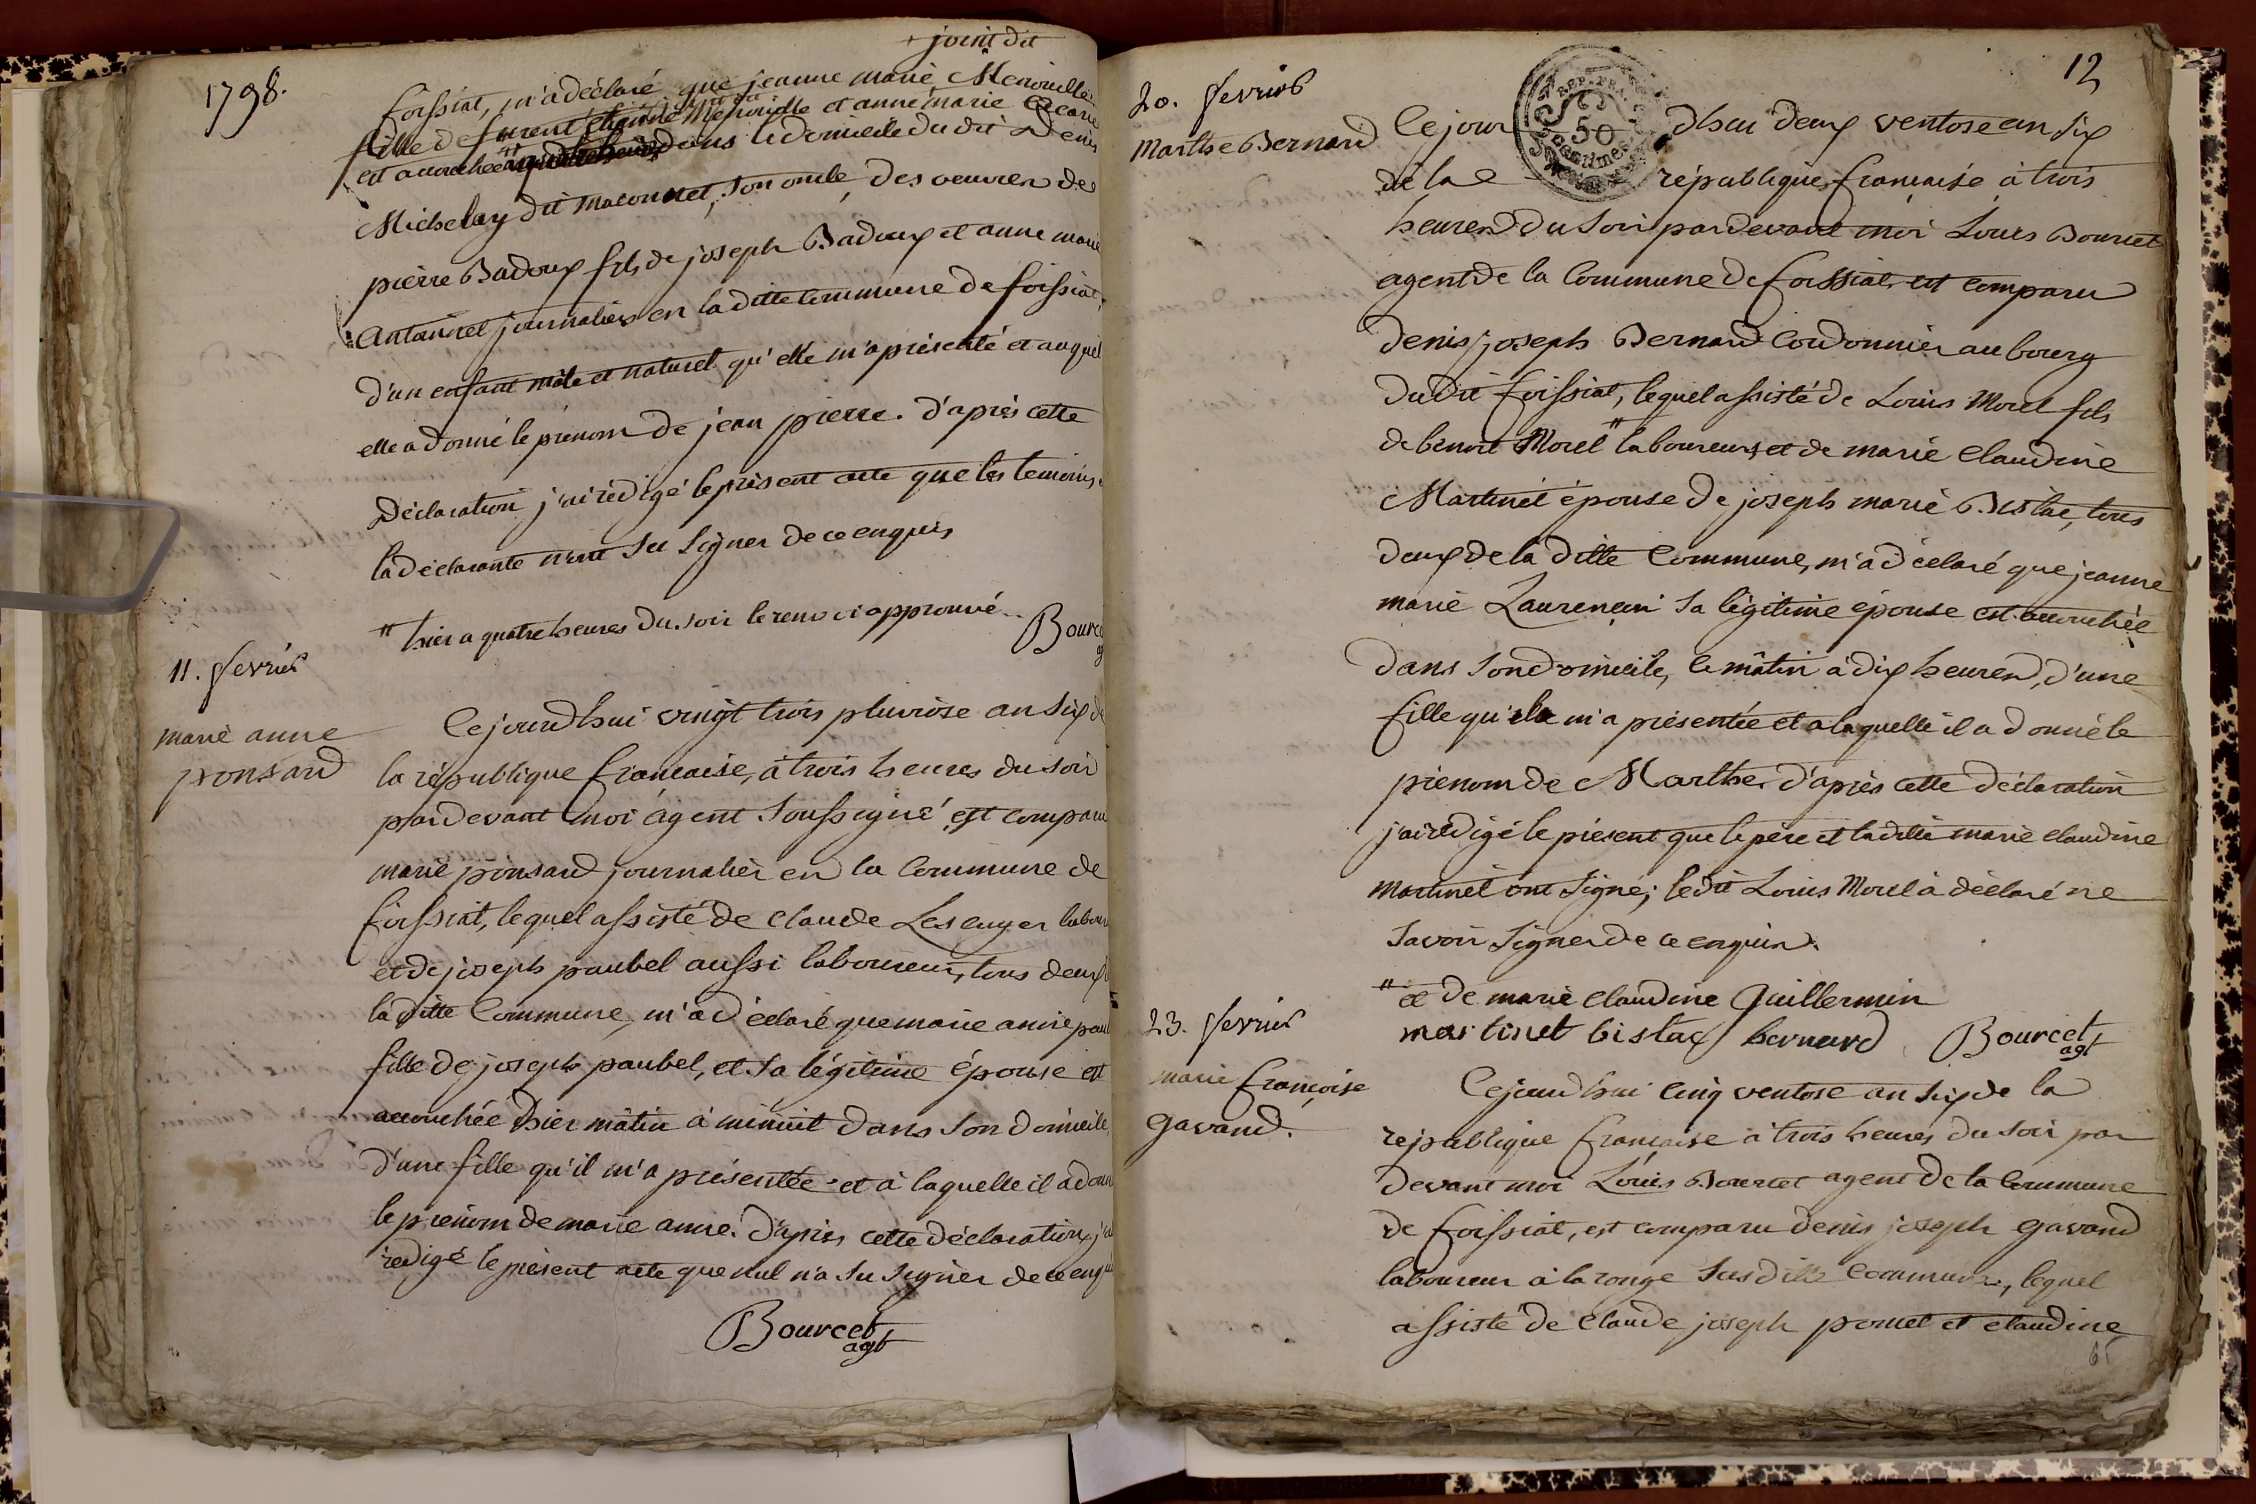 1798.
joint dit
foissiat, m'a déclaré que jeanne marie Mercoiulle
fille de et anne marie
est accouchée dans le domicile du dit Denis
Michelay dit maconnet, son oncle, des oeuvres de
pierre Badoux fils de joseph Badoux et anne marie
antoinet journalier en la ditte Commune de foissiat,
d'un enfant mâle et naturel qu'elle m'a présenté et auquel
elle a donné le prénom de jean pierre. d'après cette
déclaration j'ai rédigé le présent acte que les temoins
la déclarante n'ont su signer de ce enquis
# hier a quatre heures du soir le renvoi approuvé.
Bource
11. fevrier
marie anne
ponsard
Ce jourdhui vingt trois pluviose an six de
la république francaise, à trois heures du soir
pardevant moi agent soussigné est comparu
marie ponsard journalier en la Commune de
foissiat, lequel assisté de Claude Lescuyer labour
et de joseph paubel aussi laboureur, tous deux
la ditte Commune, m'a déclaré que marie anne pau
fille de joseph paubel, et sa légitime épouse est
accouchée hier mâtin à minuit dans son domicile,
d'une fille qu'il m'a présentée et à laquelle il a donn
le prénom de marie anne. d'après cette déclaration, j'a
redigé le présent acte que nul n'a su signer de ce enqu
Bourcet
agt
12
REP. FRA.
50
Centimes
20. fevrier
Marthe Bernard
Ce jour dhui deux ventose an six
de la république francaise à trois
heures du soir pardevant moi Louis Bourcet
agent de la Commune de foissiat, est comparu
denis joseph Bernard Cordonnier au bourg
dudit foissiat, lequel assisté de Louis Morel fils
de benoit Morel # laboureurs et de marie Claudine
Martinet épouse de joseph marie Bistac, tous
deux de la ditte Commune, m'a déclaré que jeanne
marie Laurencin sa légitime épouse est accouchée
dans son domicile, ce mâtin à dix heures, d'une
fille qu'il m'a présentée et a laquelle il a donné le
prénom de Marthe. d'après cette déclaration
j'ai rédigé le présent que le père et la ditte marie claudine
martinet ont signé; le dit Louis Morel a déclaré ne
savoir signer de ce enquis.
# et de marie Claudine Guillermin
martinet bistac bernard Bourcet
agt
23. fevrier
marie françoise
gavand.
Ce jourdhui cinq ventose an six de la
republique francaise à trois heures du soir par
devant moi Louis Bourcet agent de la Commune
de foissiat, est comparu denis joseph gavand
laboureur à la ronge susditte Commune, lequel
assisté de Claude joseph et claudine